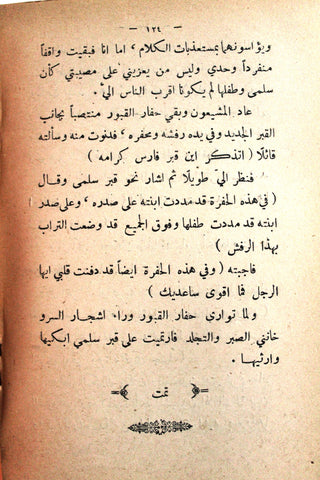 — ١٢٤ —
ويؤاسونهما بمستعذبات الكلام ، اما انا فبقيت واقفاً
منفرداً وحدي وليس من يعزيني على مصيبتي كأن
سلمى وطفلها لم يكونا اقرب الناس اليّ .
عاد المشيعون وبقي حفار القبور منتصباً بجانب
القبر الجديد وفي يده رفشه ومحفره ، فدنوت منه وسألته
قائلًا ( اتذكر اين قبر فارس كرامه )
فنظر اليّ طويلًا ثم اشار نحو قبر سلمى وقال
( في هذه الحفرة قد مددت ابنته على صدره ، وعلى صدر
ابنته قد مددت طفلها وفوق الجميع قد وضعت التراب
بهذا الرفش )
فاجبته ( وفي هذه الحفرة ايضاً قد دفنت قلبي ايها
الرجل فما اقوى ساعديك )
ولما توارى حفار القبور وراء اشجار السرو
خانني الصبر والتجلد فارتميت على قبر سلمى ابكيها
وارثيها .
تمت